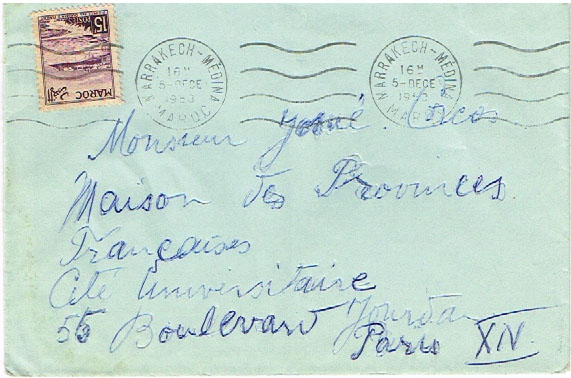 15F
POSTES
MAROC
MARRAKECH-MÉDINA
16H
5-DECE
1953
MAROC
MARRAKECH-MÉDINA
16H
5-DECE
Monsieur Josué Corcos
Maison des Provinces
Françaises
Cité Universitaire
55 Boulevard Jourdan
Paris XIV